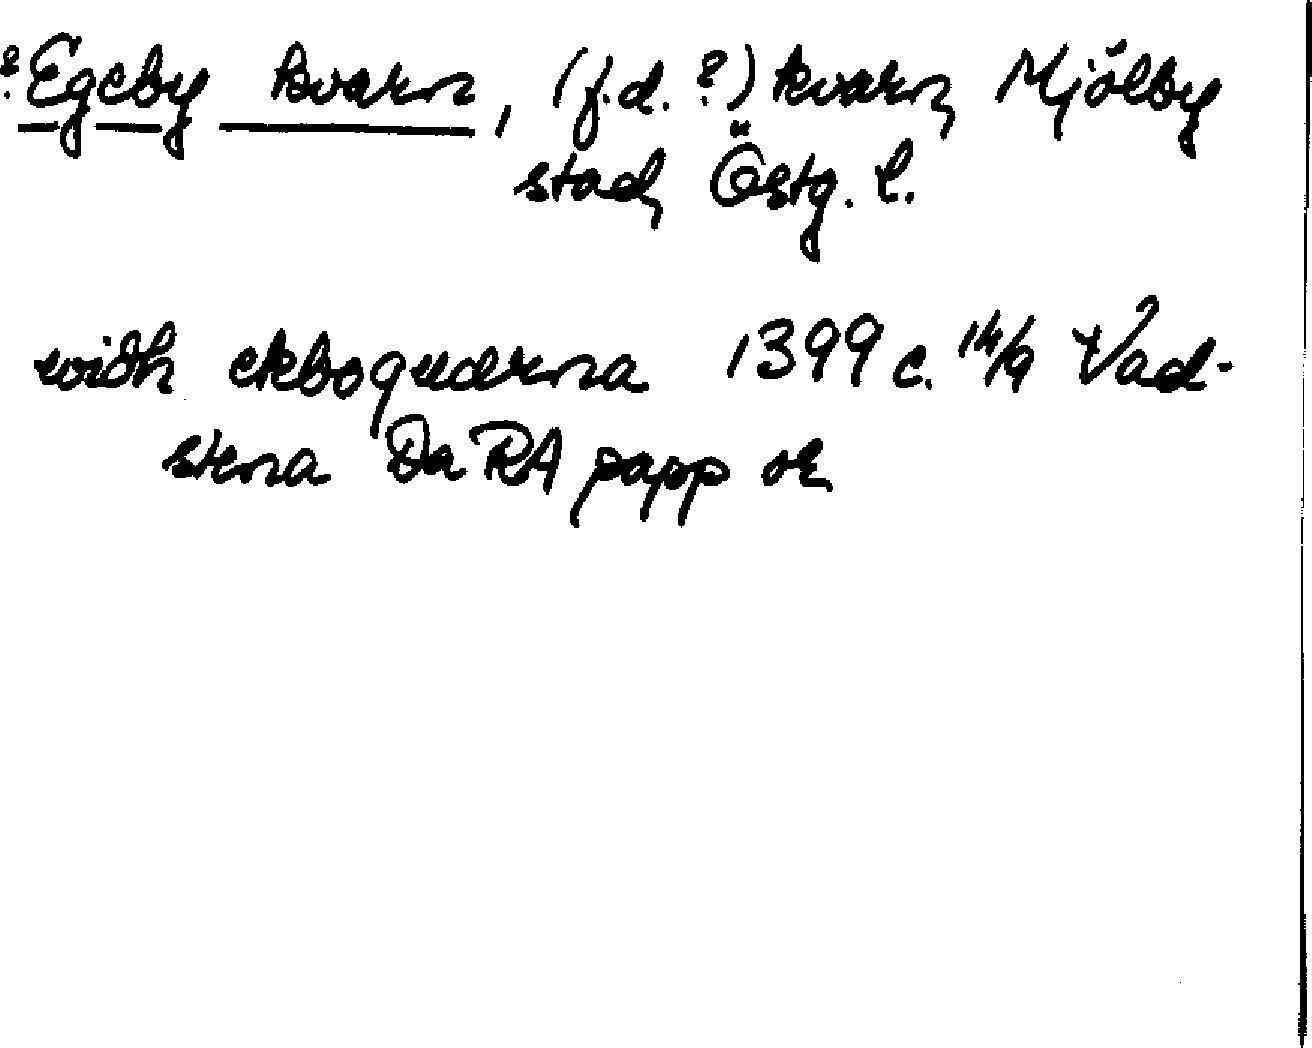 ? Egeby kvarn, (f.d. ?) kvarn, Mjölby
stad, Östg. l.
widh ekboquderna 1399 c. 14/9 Vad-
stena Da RA papp or